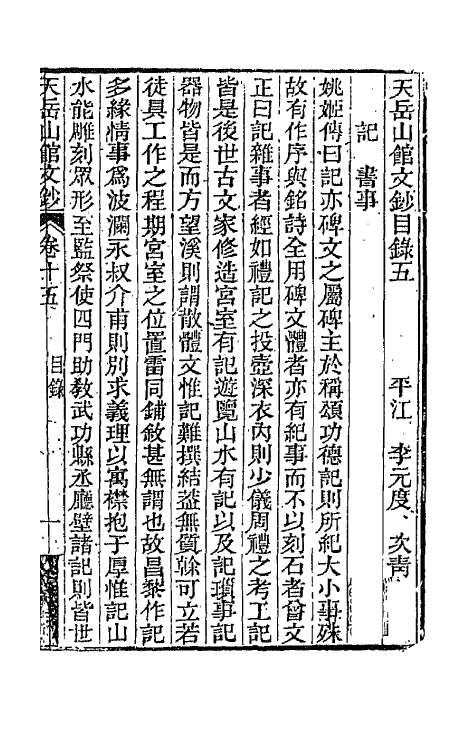 天岳山館文鈔目錄五　平江　李元度　次青
記　書事
姚姬傳曰記亦碑文之屬碑主於稱頌功德記則所紀大小事殊
故有作序與銘詩全用碑文體者亦有紀事而不以刻石者曾文
正曰記雜事者經如禮記之投壺深衣內則少儀周禮之考工記
皆是後世古文家修造宮室有記遊覽山水有記以及記瑣事記
器物皆是而方望溪則謂散體文惟記難撰結葢無質榦可立若
徒具工作之程期宮室之位置雷同鋪敘甚無謂也故昌黎作記
多緣情事為波瀾永叔介甫則別求義理以寓襟抱子厚惟記山
水能雕刻眾形至監祭使四門助教武功縣丞廳壁諸記則皆世
天岳山館文鈔　卷十五　目錄　一